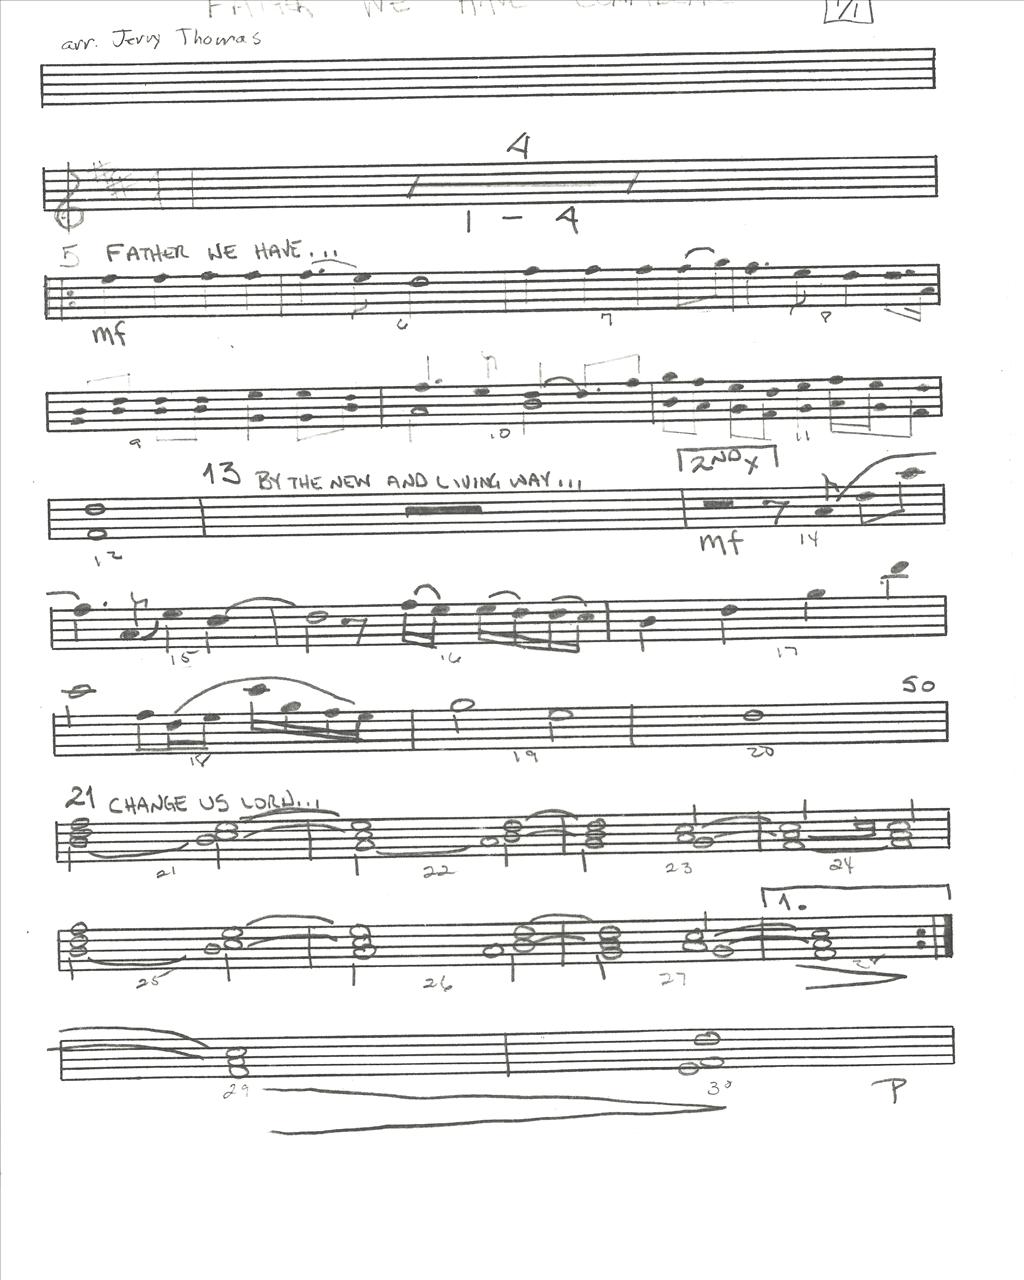 FATHER WE HAVE 1/1
arr. Jerry Thomas
4
1 - 4
5 FATHER WE HAVE...
mf
6 7 8
9 10 11
13 BY THE NEW AND LIVING WAY... 2ND X
12 mf 14
15 16 17
SO
18 19 20
21 CHANGE US LORD...
21 22 23 24
1.
25 26 27 28
29 30 P